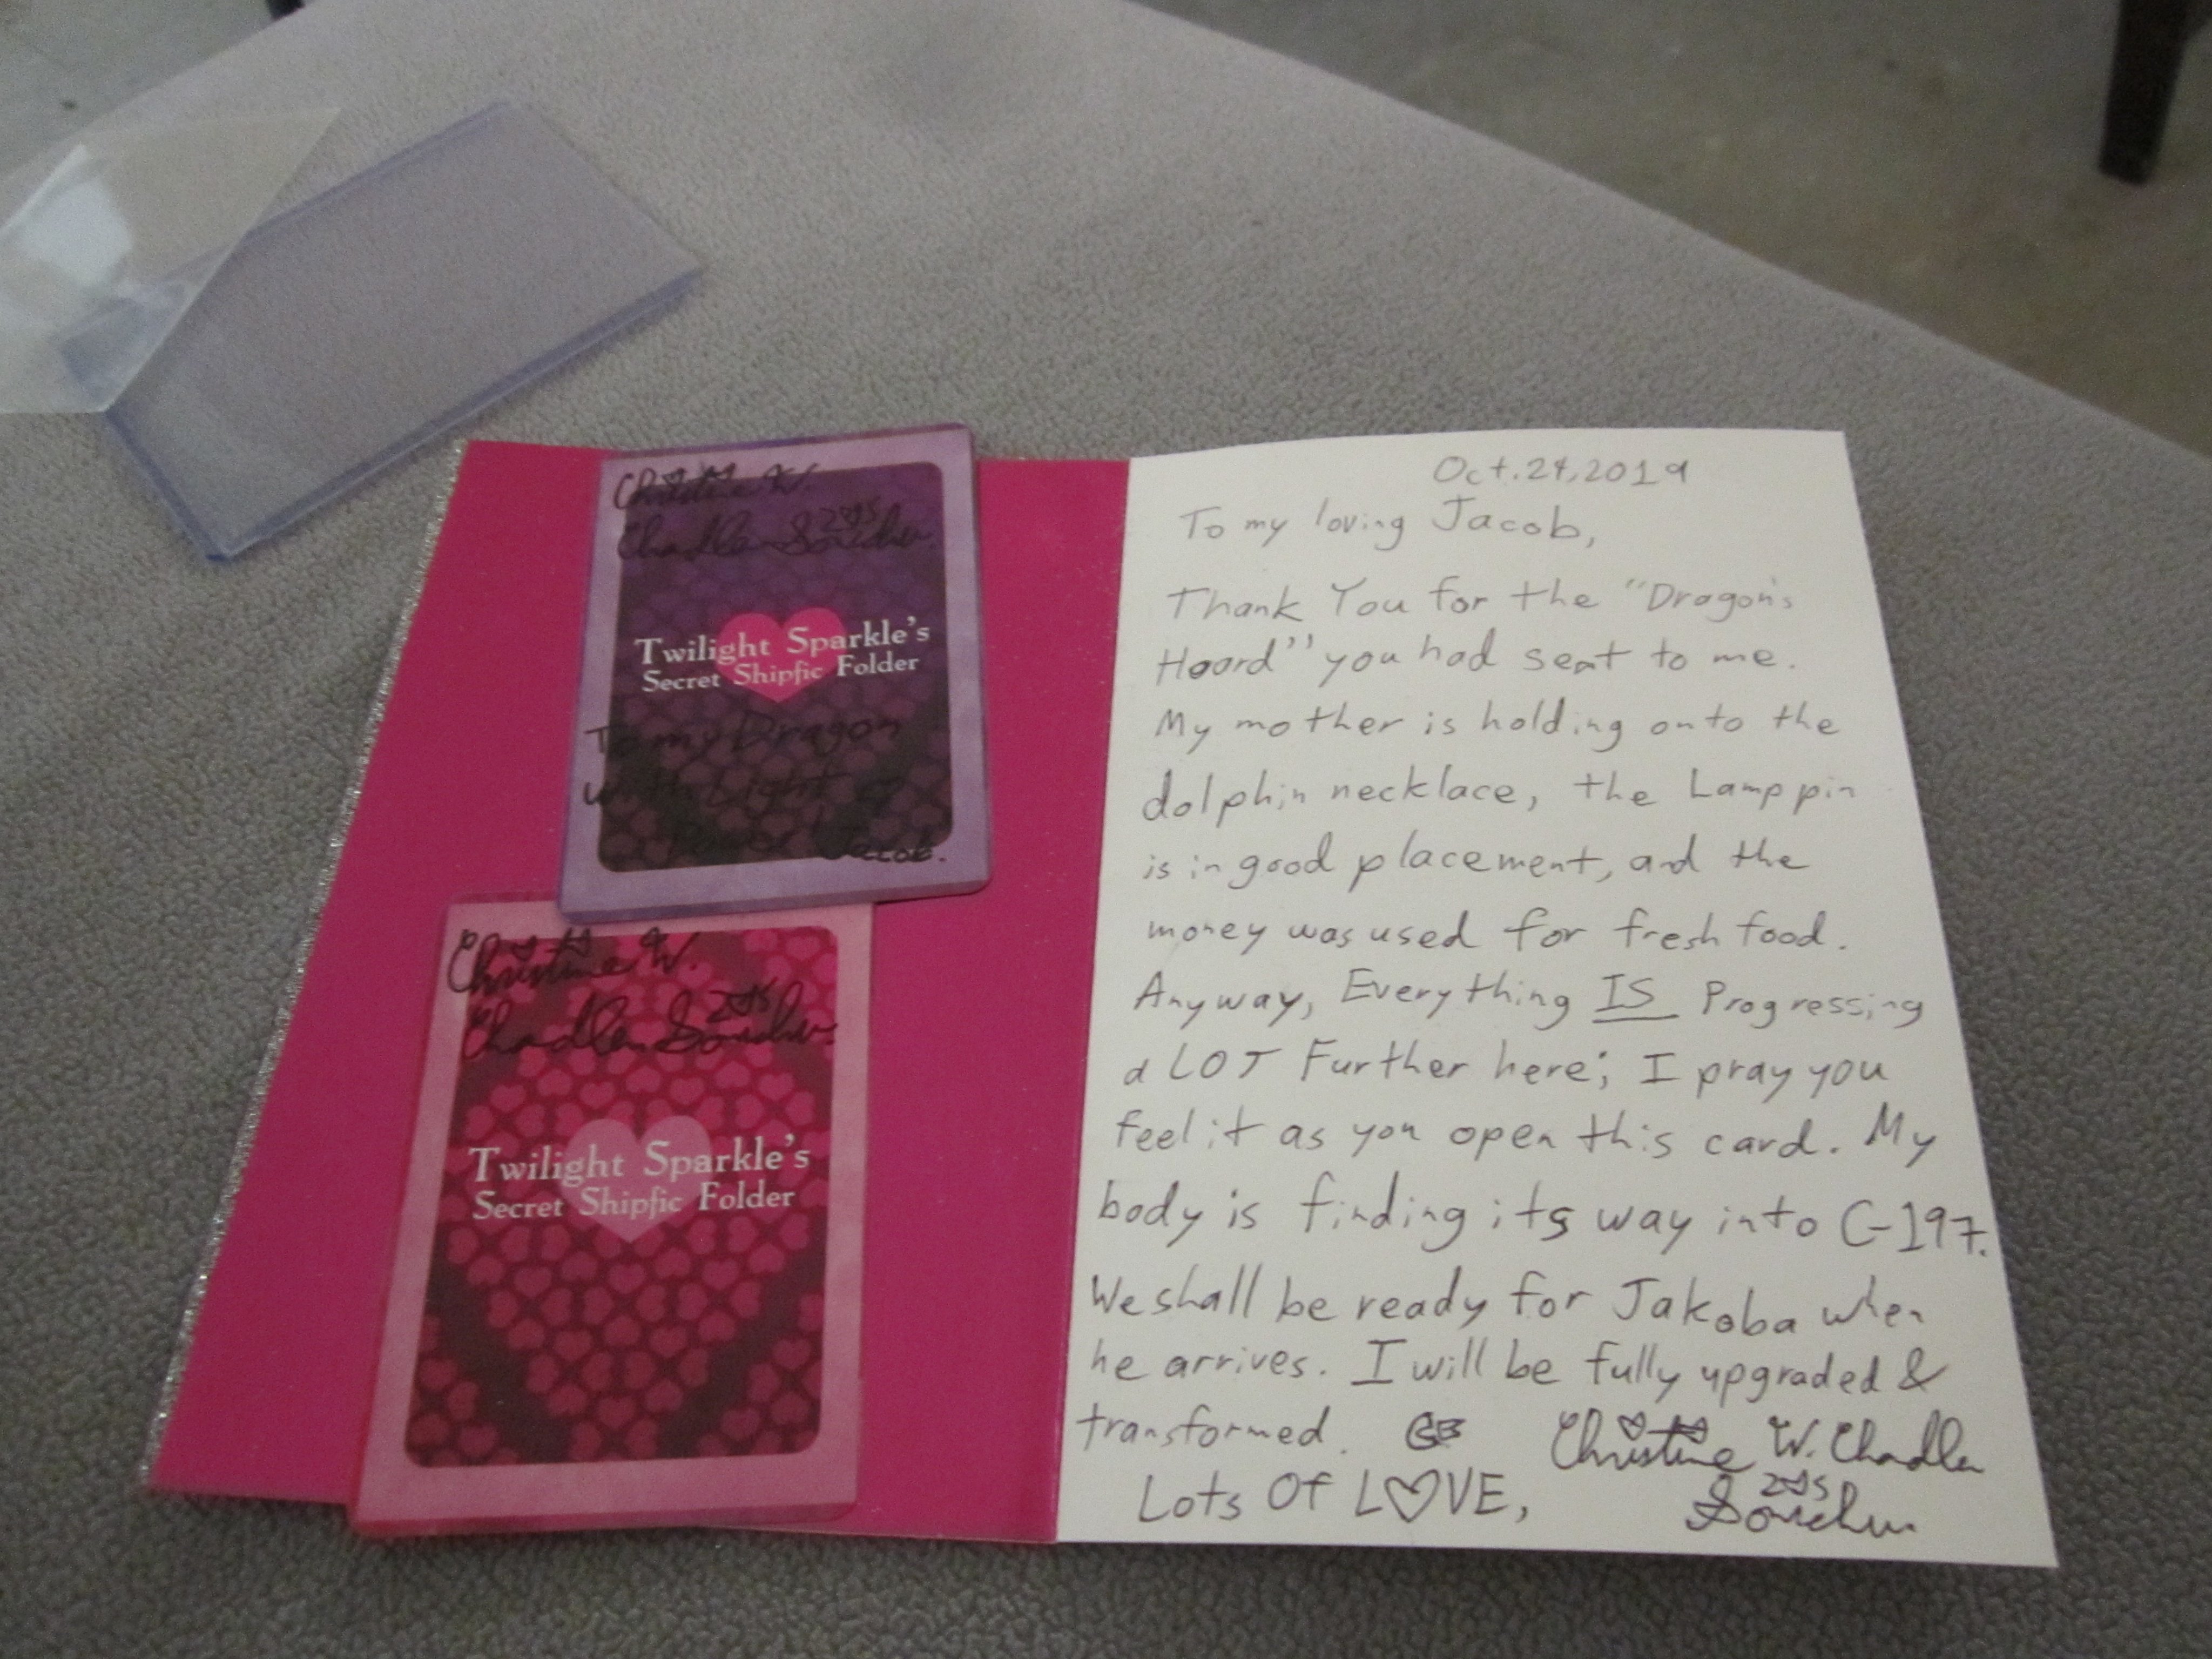 Christine W.
Chandler Sonichu.
Twilight Sparkle's
Secret Shipfic Folder
To my Dragon
with Light of
Jacob.
Christine W.
Chandler Sonichu.
Twilight Sparkle's
Secret Shipfic Folder
Oct.24,2019
To my loving Jacob,
Thank You for the "Dragon's
Hoard" you had sent to me.
My mother is holding onto the
dolphin necklace, the Lamp pin
is in good placement, and the
money was used for fresh food.
Anyway, Everything IS Progressing
a LOT Further here; I pray you
feel it as you open this card. My
body is finding its way into C-197.
We shall be ready for Jakoba when
he arrives. I will be fully upgraded &
transformed.
Lots Of L♡VE,
Christine W. Chandler
Sonichu.